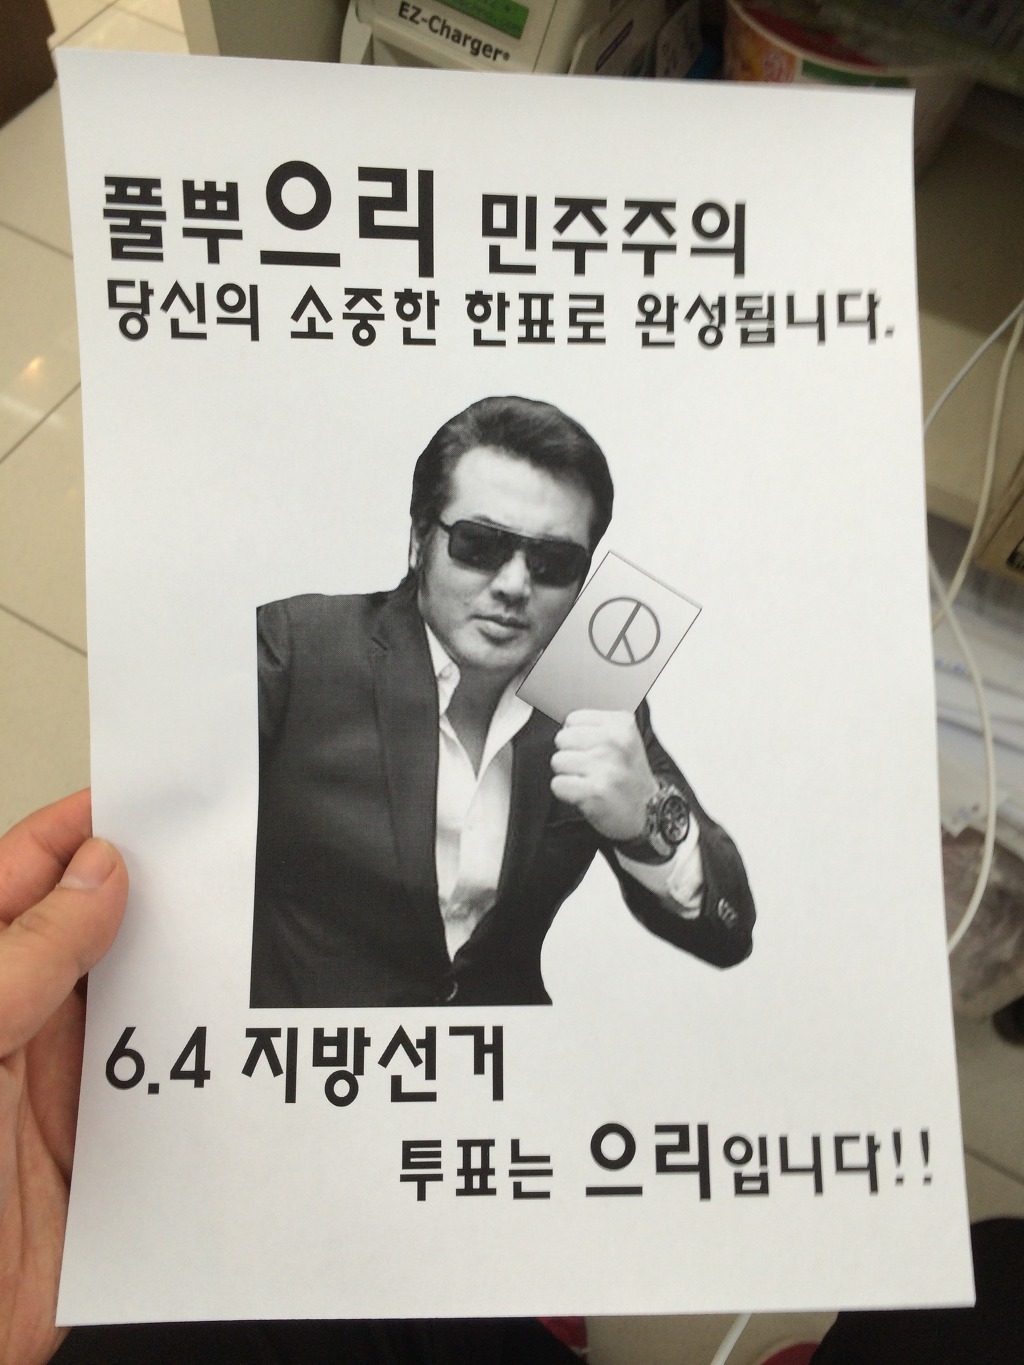 EZ-Charger®
풀뿌으리 민주주의
당신의 소중한 한표로 완성됩니다.
6.4 지방선거
투표는 으리입니다!!